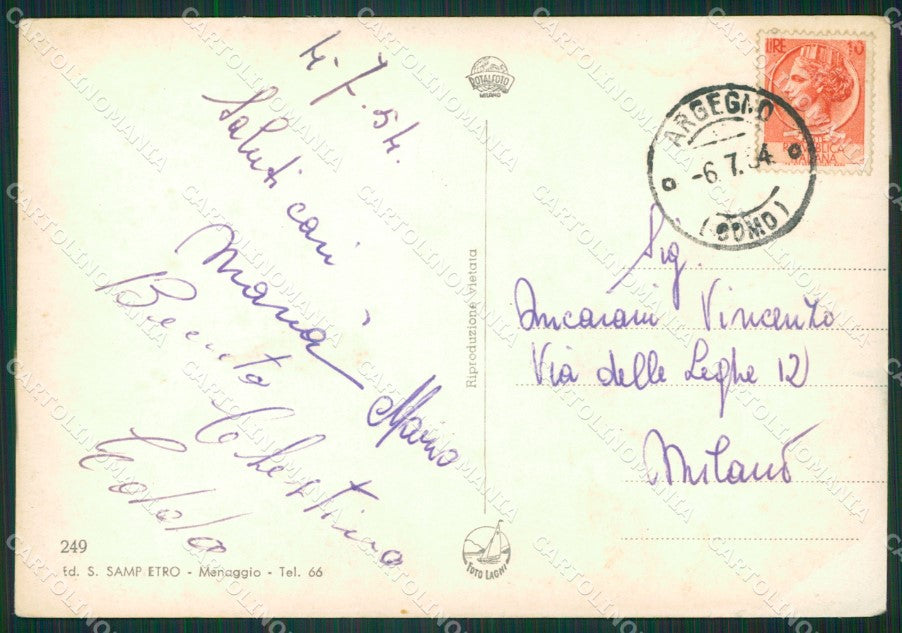 4.7.54.
Saluti cari
Maria
Mario
ROTALFOTO
MILANO
Riproduzione Vietata
LIRE 10
REPUBBLICA
ITALIANA
ARGEGNO
-6.7.54
(COMO)
Sig.
Vincenzo
Via delle Leghe 12
Milano
249
Ed. S. SAMPIETRO - Menaggio - Tel. 66
FOTO LAGHI
CARTOLINOMANIA